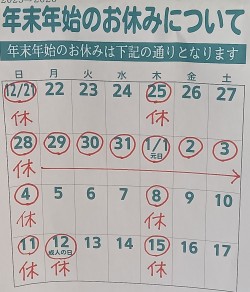 2025~2026
年末年始のお休みについて
年末年始のお休みは下記の通りとなります
日 月 火 水 木 金 土
12/21 22 23 24 25 26 27
休 休
28 29 30 31 1/1 元日 2 3
休
4 5 6 7 8 9 10
休 休
11 12 成人の日 13 14 15 16 17
休 休 休